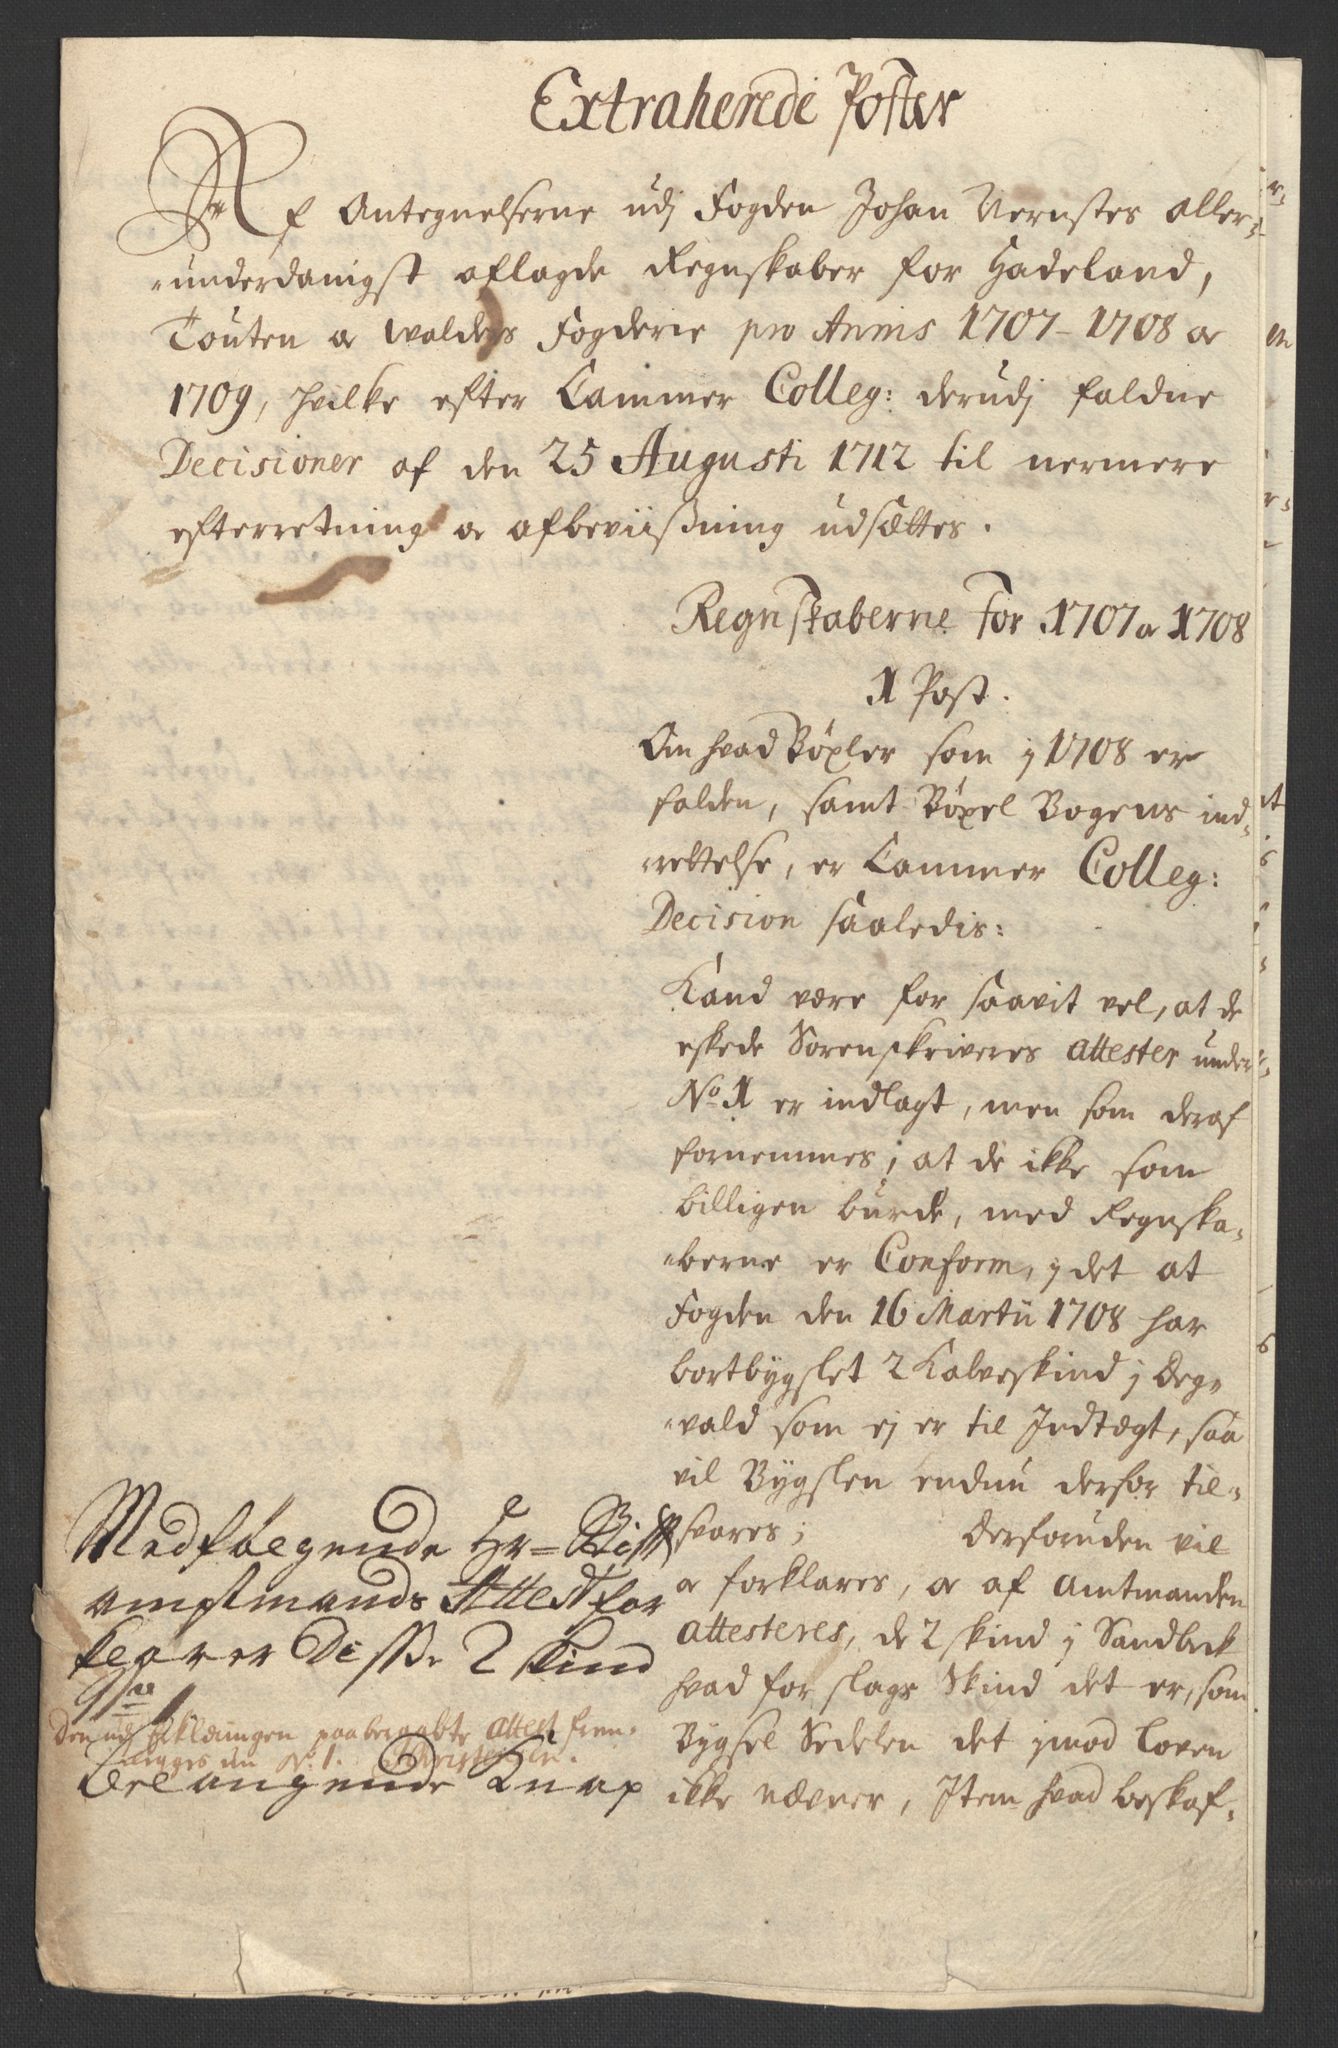 Extraherede Poster
Af Antegnelserne udj Fogden Johan Vernstes aller-
underdanigst aflagde Regnskaber for Hadeland,
Touten og Walders Fogderie pro Annis 1707-1708 og
1709, hvilke efter Cammer Colleg: derudj faldne
Decisioner af den 25 Augusti 1712 til nermere
efterretning og afbeviißning udsættes.
Regnskaberne for 1707 og 1708
1 Post.
Om hvad Böxler som j 1708 er
falden, samt Böxel Bogens ind-
rettelse, er Cammer Colleg:
Decision saaledis:
Kand være for saavit vel, at de
eskede Sorenskriveres attester under
No. 1 er indlagt, men som deraf
fornemmes, at de ikke som
billigen burde, med Regnska-
berne er Conform, j det at
Fogden den 16 Martii 1708 har
bortbygslet 2 Kalveskind j Deg-
vald som ej er til Indtægt, saa
vil Bygslen endnu derfor til-
svares; Derforuden vil
og forklares, og af Amtmanden
attesteres, de 2 skind j Sandbeck
hvad for slags Skind det er, som
Bygsel Sedelen det jmod Loven
ikke nævner, Item hvad beskaf-
Medfölgende Hr- Stift
amptmands Attest for
klarer Disse 2 skind
Den ud j erklæringen paaberaabte attest frem-
lægges un No. 1.
Belangende Knap